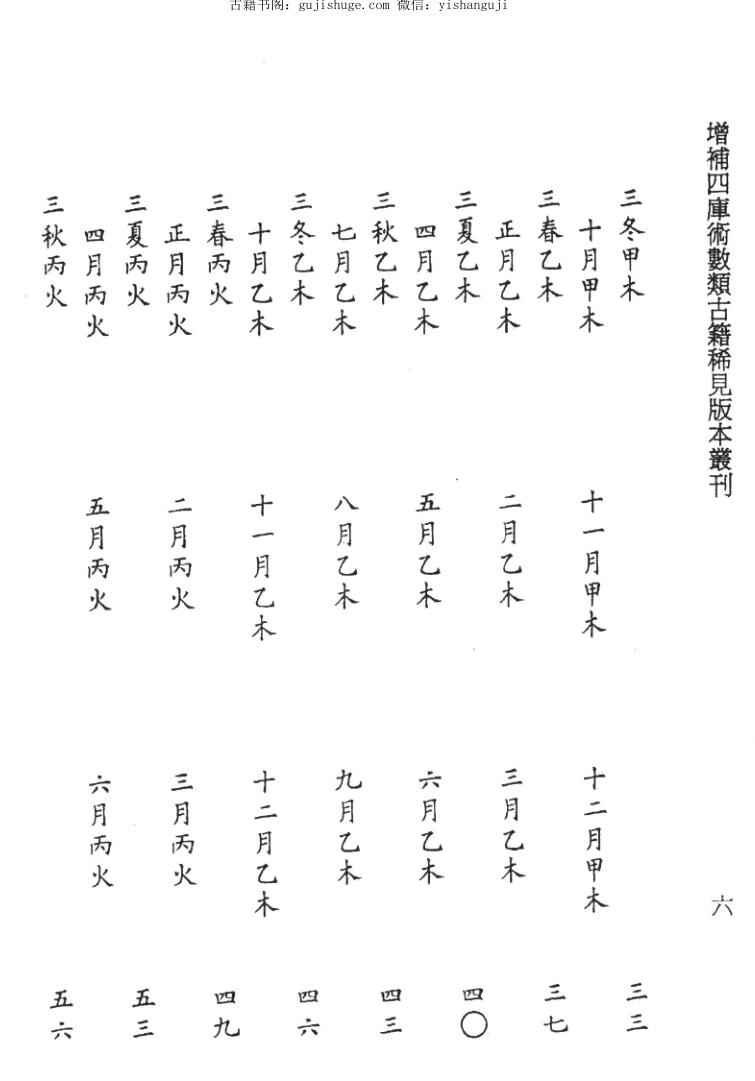 古籍书阁：gujishuge.com 微信：yishanguji
增補四庫術數類古籍稀見版本叢刊 六
三冬甲木 三三
十月甲木 十一月甲木 十二月甲木
三春乙木 三七
正月乙木 二月乙木 三月乙木
三夏乙木 四〇
四月乙木 五月乙木 六月乙木
三秋乙木 四三
七月乙木 八月乙木 九月乙木
三冬乙木 四六
十月乙木 十一月乙木 十二月乙木
三春丙火 四九
正月丙火 二月丙火 三月丙火
三夏丙火 五三
四月丙火 五月丙火 六月丙火
三秋丙火 五六